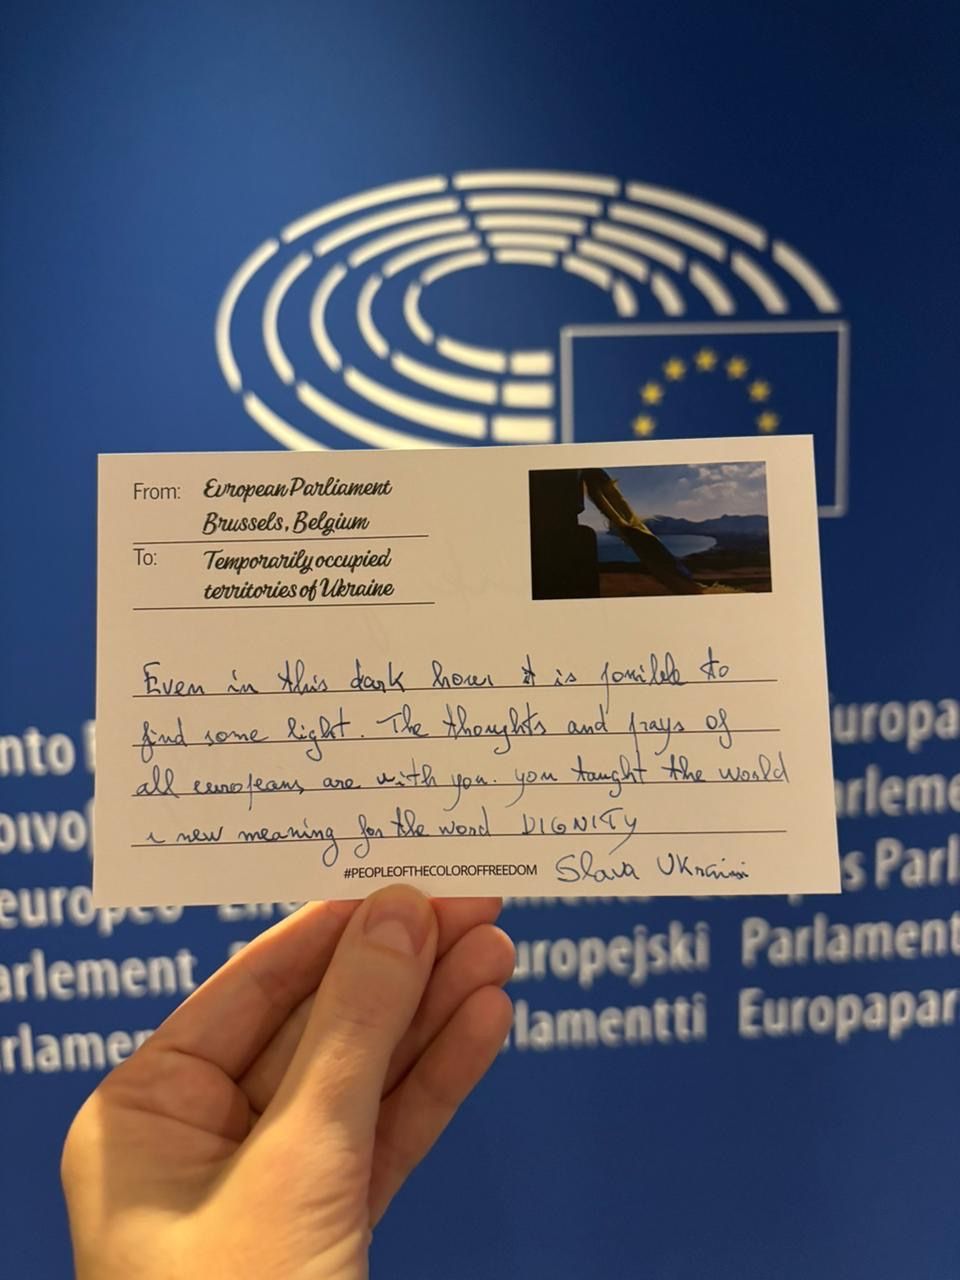 From: European Parliament
Brussels, Belgium
To: Temporarily occupied
territories of Ukraine
Even in this dark hour it is possible to
find some light. The thoughts and prays of
all europeans are with you. you taught the world
a new meaning for the word DIGNITY
#PEOPLEOFTHECOLOROFFREEDOM Slava Ukraini
nto
uropa
arleme
s Parl
europeo
arlement
uropejski Parlament
rlamen
lamentti Europapar